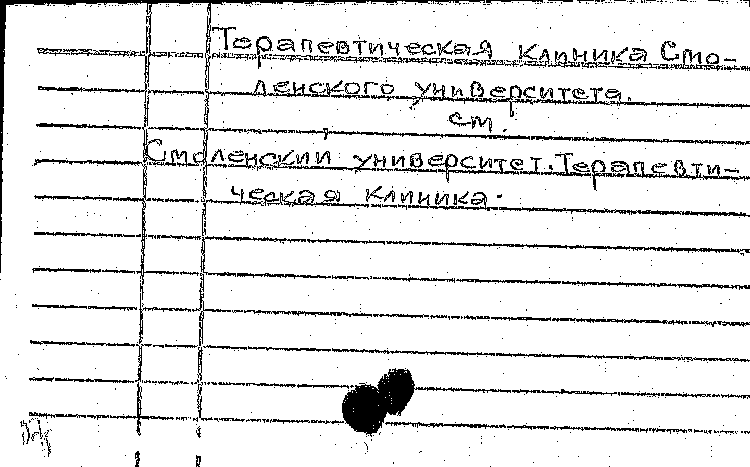 Терапевтическая клиника Смо-
ленского университета.
см.
Смоленский университет. Терапевти-
ческая клиника.